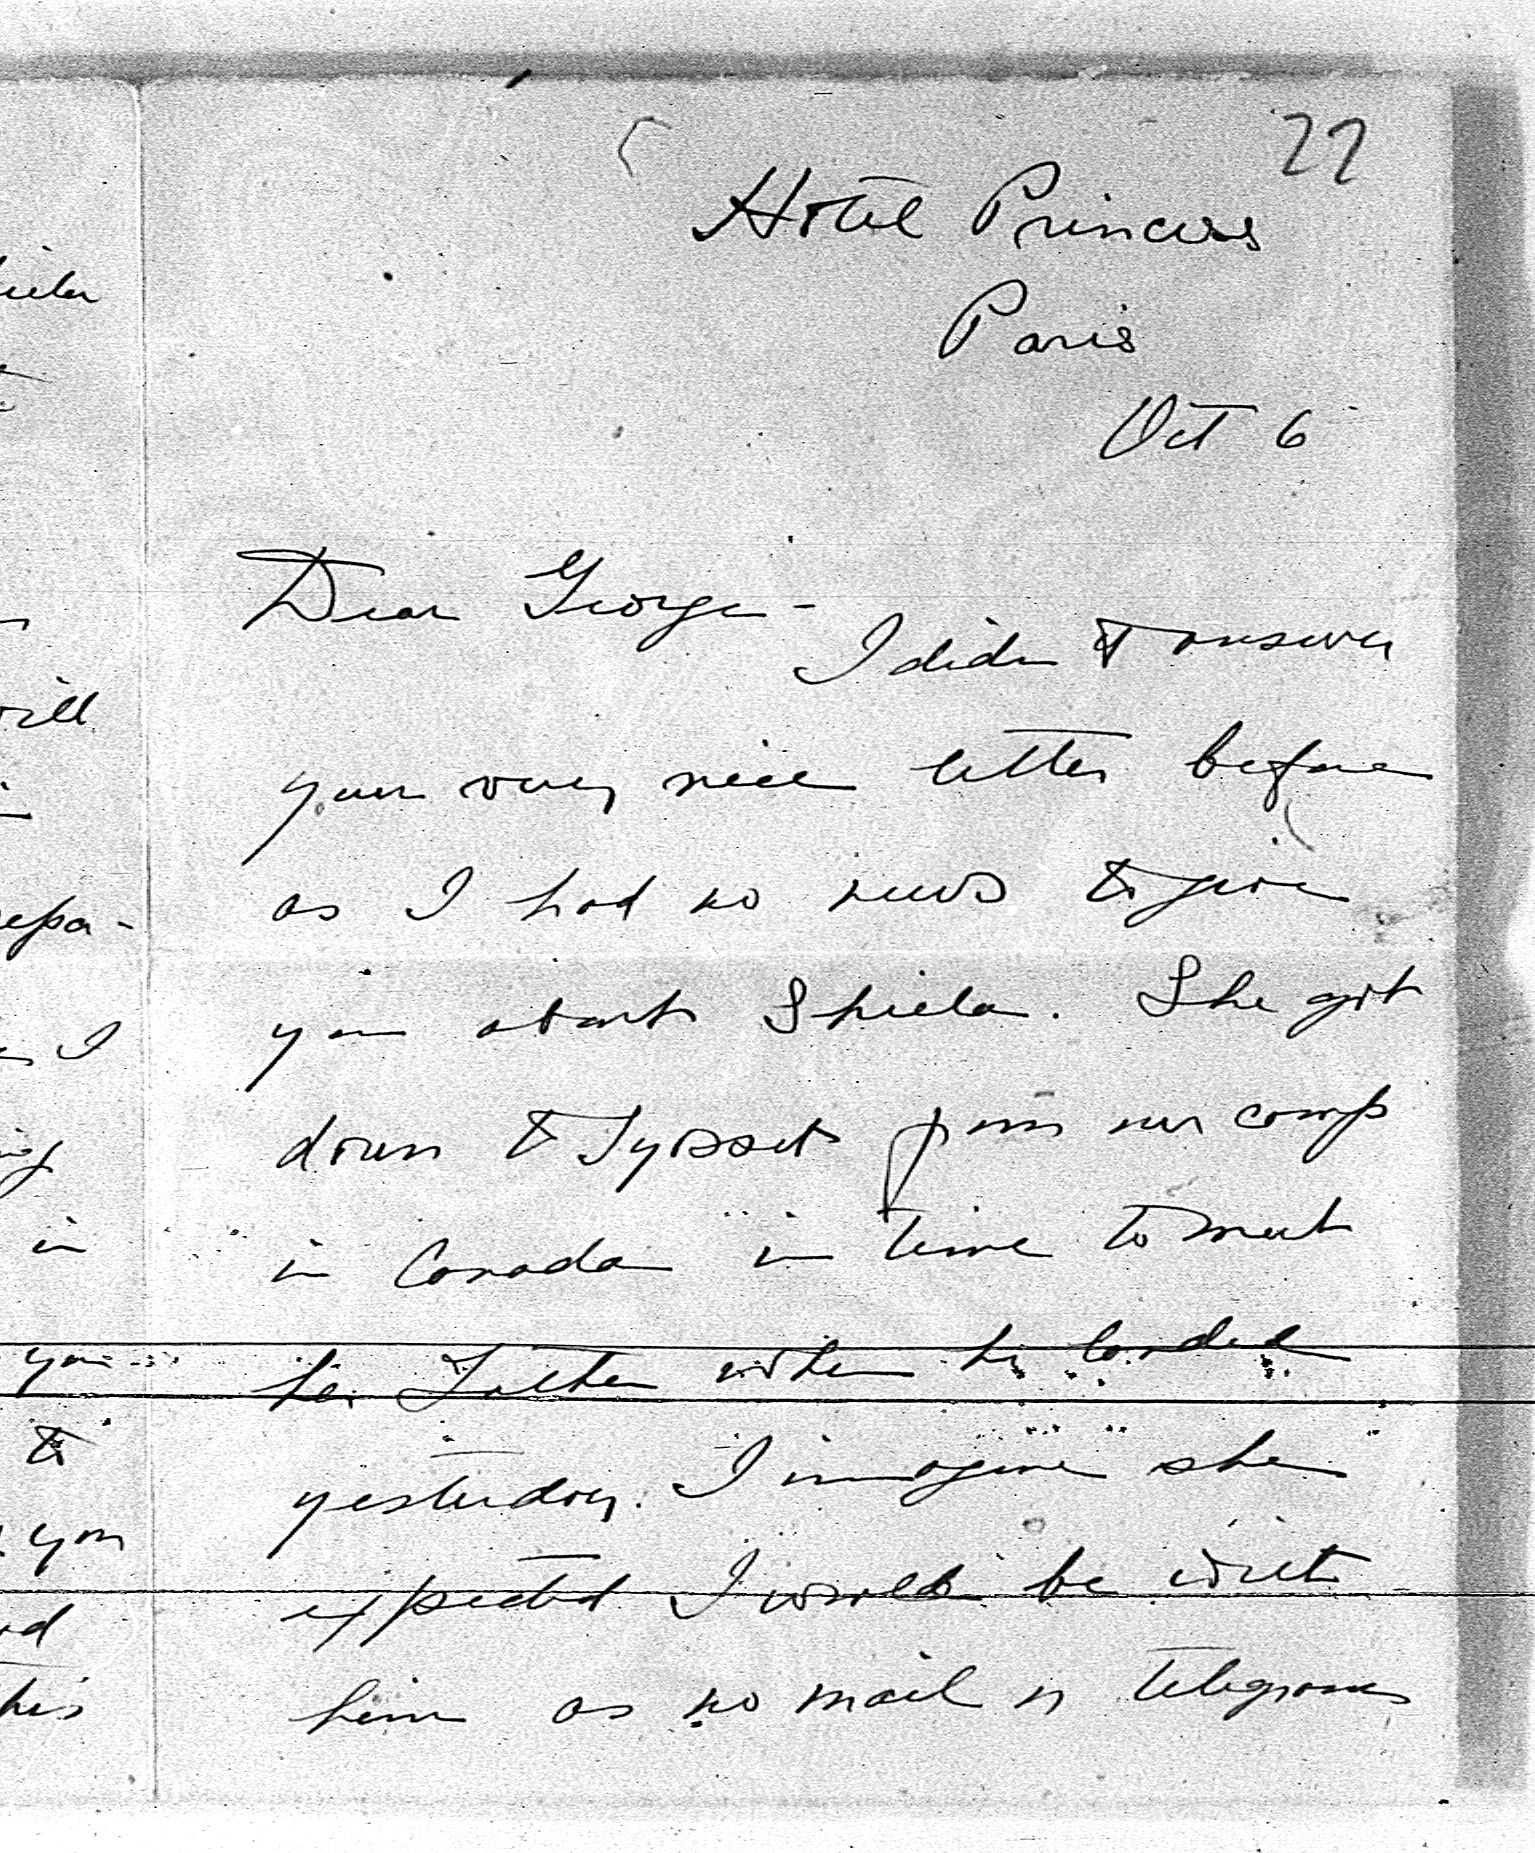 22
Hotel Princess
Paris
Oct 6
Dear George -
I didn't answer
your very nice letter before
as I had no news to give
you about Shiela. She got
down to Tyosset from our camp
in Canada in time to meet
her Father when he landed
yesterday. I imagine she
expected I would be with
him as no mail or telegrams
will
I
in
you
to
you
his